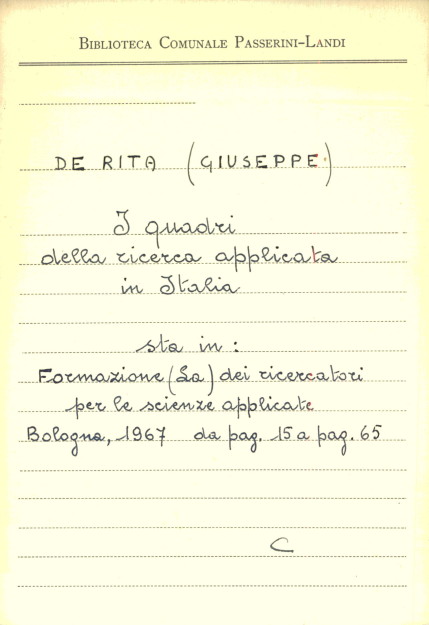 BIBLIOTECA COMUNALE PASSERINI-LANDI
DE RITA (GIUSEPPE)
I quadri
della ricerca applicata
in Italia
sta in :
Formazione (La) dei ricercatori
per le scienze applicate
Bologna, 1967 da pag. 15 a pag. 65
C